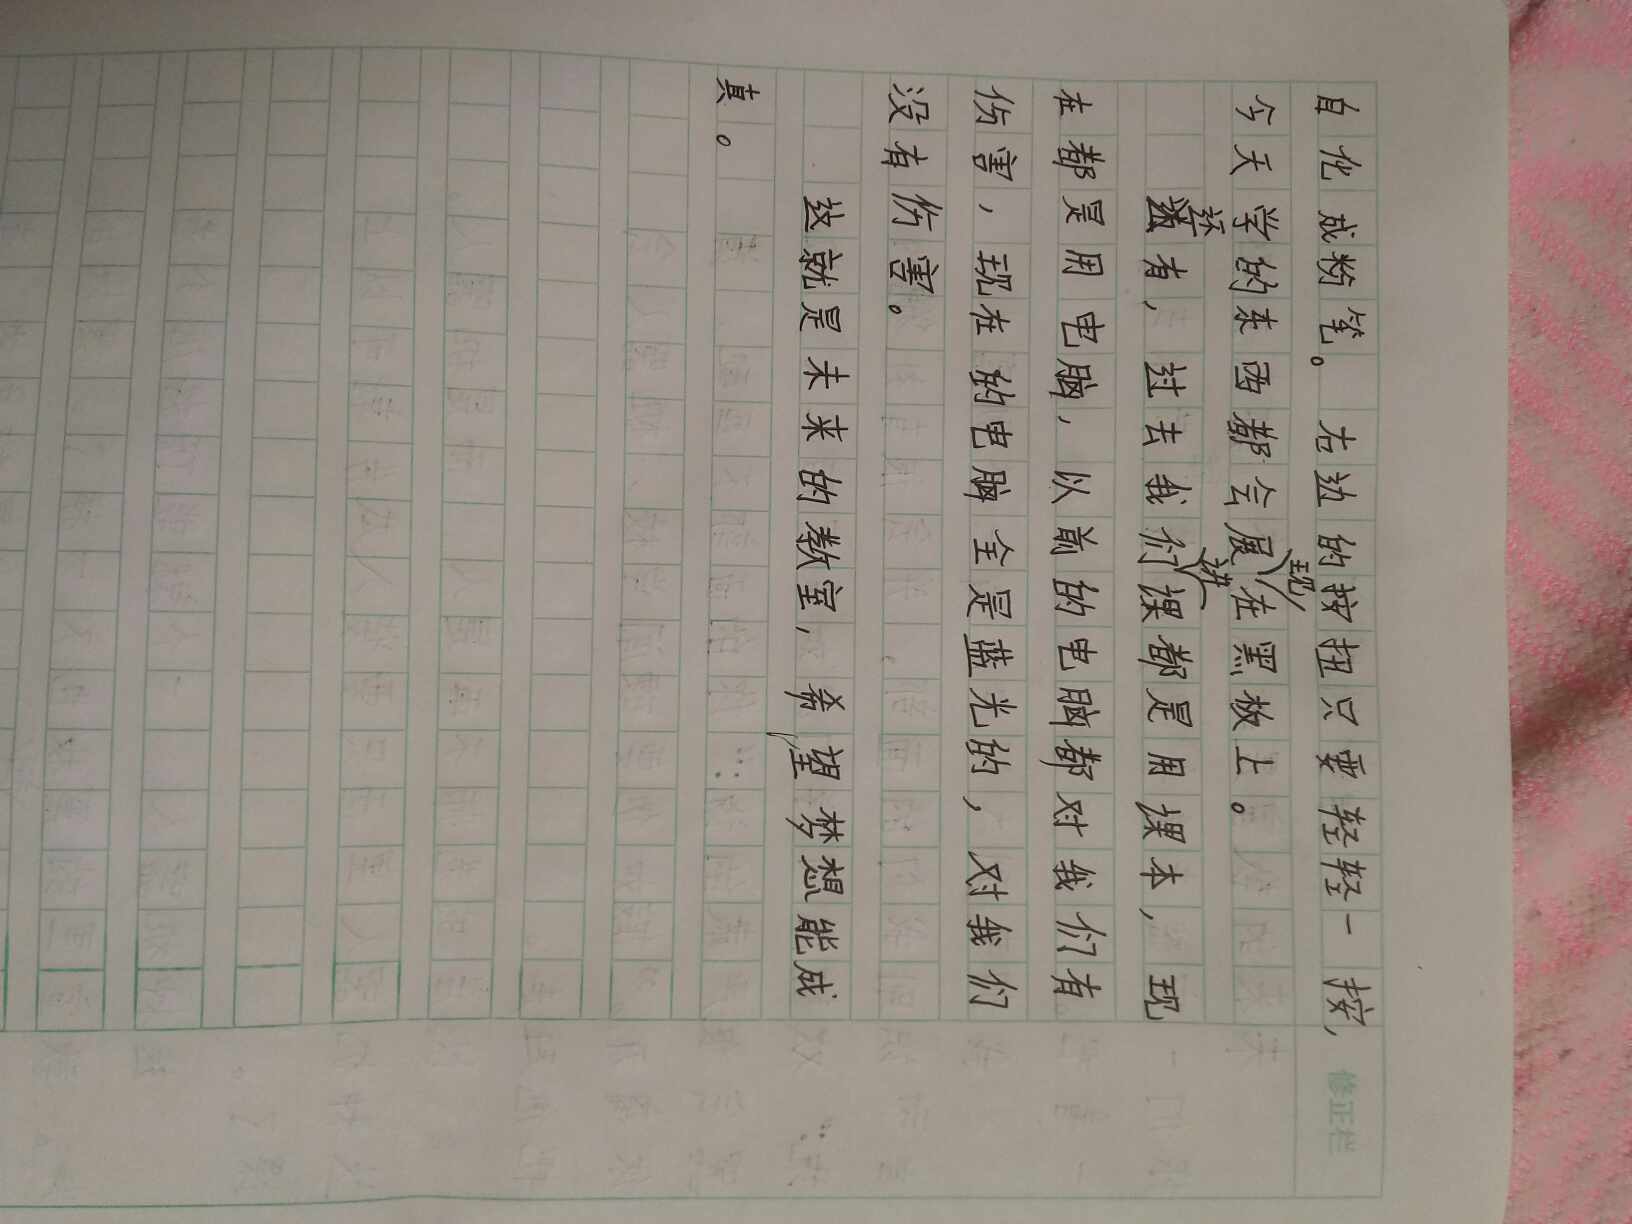 自化成粉笔。右边的按扭只要轻轻一按，
今天学的东西都会展现在黑板上。
还有，过去我们讲课都是用课本，现
在都是用电脑，以前的电脑都对我们有
伤害，现在的电脑全是蓝光的，对我们
没有伤害。
这就是未来的教室，希望梦想能成
真。
修正栏